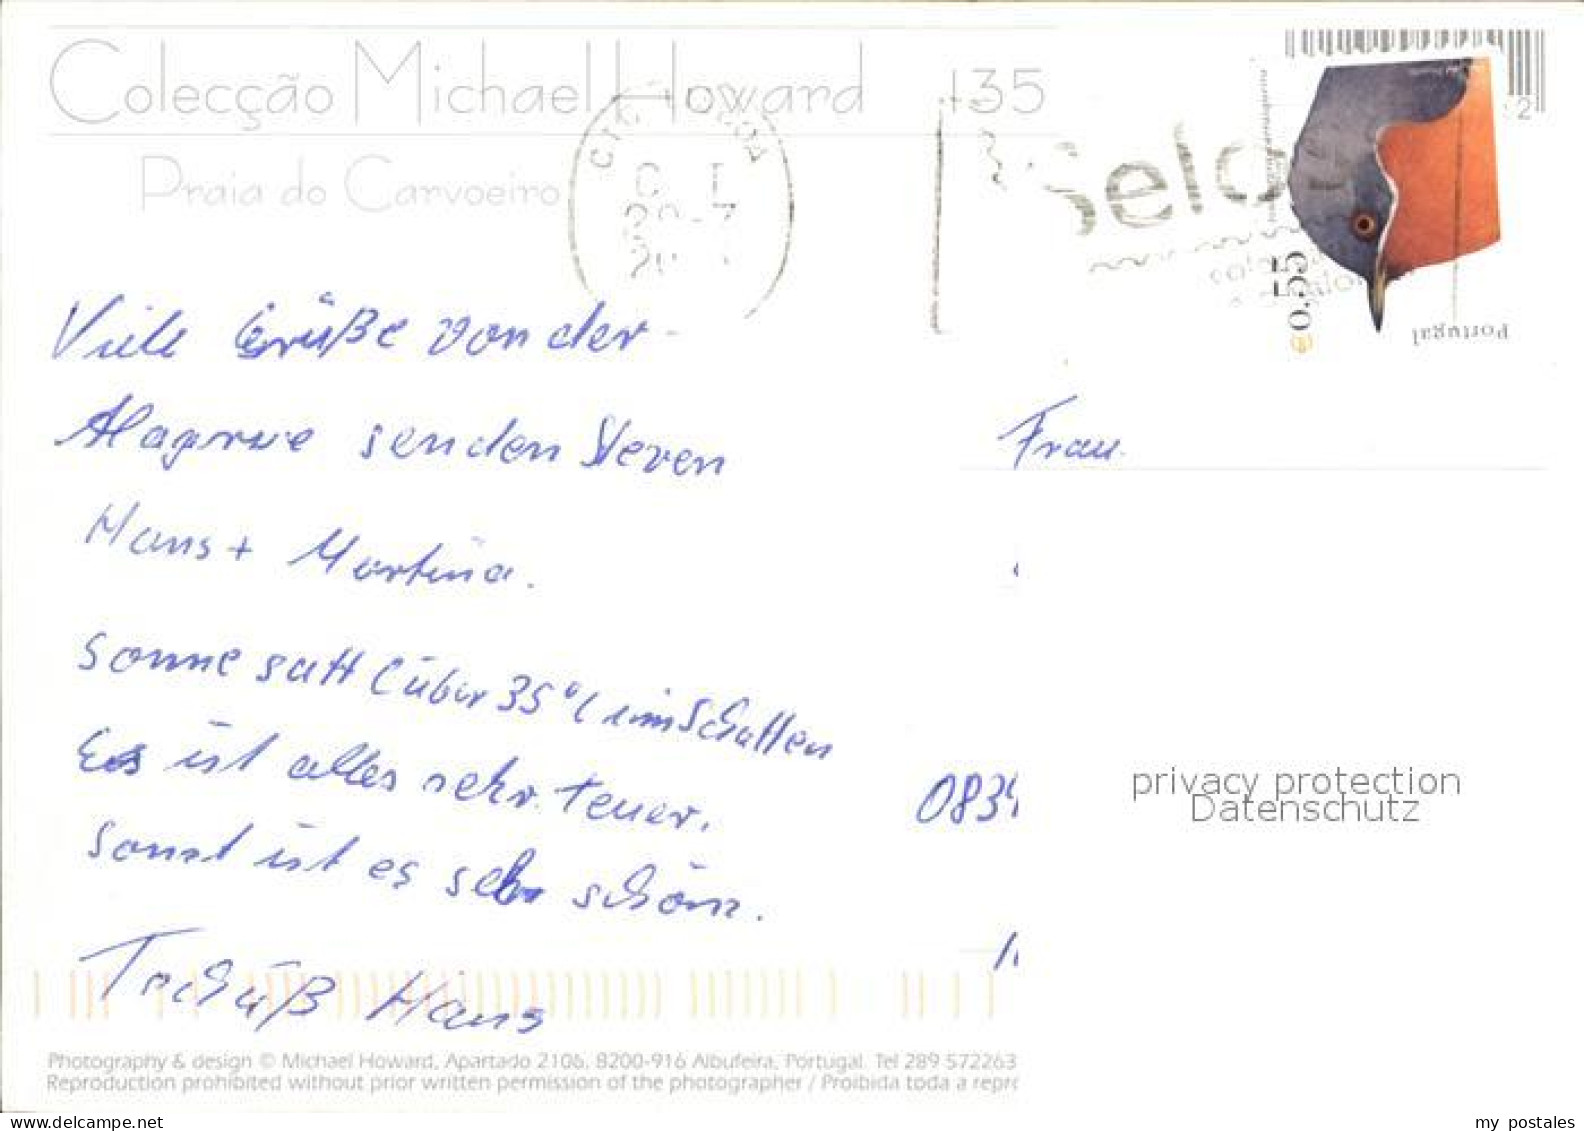 Colecção Michael Howard 135
Praia do Carvoeiro
Selo
€0.55
Portugal
Viele Grüße von der
Alagrve senden Steven
Hans + Martina.
Sonne satt (über 35°C im Schatten
Es ist alles sehr teuer.
Sonst ist es sehr schön.
Tschüß Hans
Frau
privacy protection
Datenschutz
Photography & design © Michael Howard, Apartado 2106, 8200-916 Albufeira, Portugal. Tel 289 572263
Reproduction prohibited without prior written permission of the photographer / Proibida toda a repro
my postales
delcampe.net